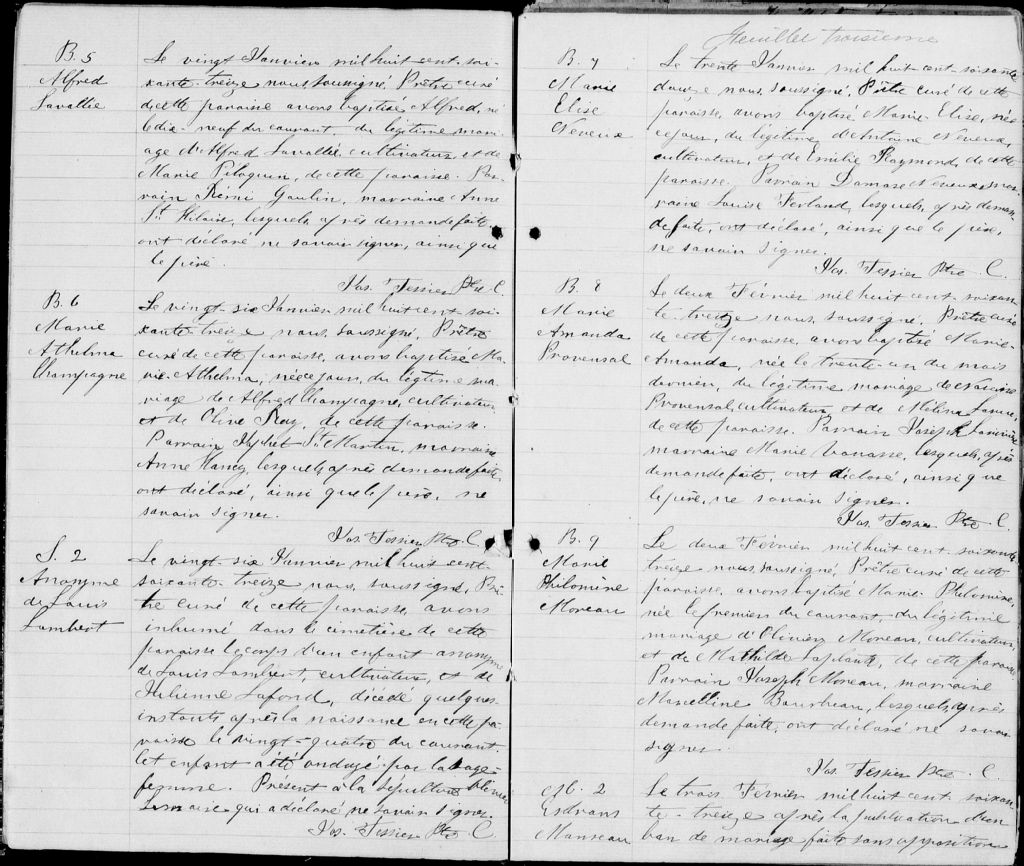 B. 5
Alfred
Lavallée
Le vingt Janvier mil huit cent soi-
xante-treize nous, soussigné, Prêtre curé
de cette paroisse avons baptisé Alfred, né
le dix-neuf du courant, du légitime mari-
age d'Alfred Lavallée, cultivateur, et de
Marie Piloquin, de cette paroisse. Par-
rain Rémi Gaulin, marraine Anne
St. Hilaire, lesquels, après demande faite,
ont déclaré ne savoir signer, ainsi que
le père.
Jos. Tessier Ptre C.
B. 6
Marie
Athelma
Champagne
Le vingt-six Janvier mil huit cent soi-
xante-treize nous, soussigné, Prêtre
curé de cette paroisse, avons baptisé Ma-
rie-Athelma, née ce jour, du légitime ma-
riage de Alfred Champagne, cultivateur,
et de Olive Roy, de cette paroisse.
Parrain St. Martin, marraine
Anne Nancy, lesquels, après demande faite,
ont déclaré, ainsi que le père, ne
savoir signer.
Jos. Tessier Ptre C.
S. 2
Anonyme
de Louis
Lambert
Le vingt-six Janvier mil huit cent-
soixante-treize nous, soussigné, Prê-
tre curé de cette paroisse, avons
inhumé dans le cimetière de cette
paroisse le corps d'un enfant anonyme
de Louis Lambert, cultivateur, et de
Julienne Lafond, décédé quelques
instants après la naissance en cette pa-
roisse le vingt-quatre du courant
Cet enfant a été ondoyé par la sage-
femme. Présent à la sépulture
qui a déclaré ne savoir signer.
Jos. Tessier Ptre C
feuillet troisième
B. 7
Marie
Elise
Neveux
Le trente Janvier mil huit-cent-soixante
douze nous, soussigné, Prêtre curé de cette
paroisse, avons baptisé Marie-Elise, née
ce jour, du légitime, d'Antoine Neveux,
cultivateur, et de Emilie Raymond, de cette
paroisse. Parrain Damase Neveux mar-
raine Louise Ferland, lesquels, après deman-
de faite, ont déclaré, ainsi que le père,
ne savoir signer.
Jos. Tessier Ptre C.
B. 8
Marie
Amanda
Provensal
Le deux Février mil huit cent-soixan-
te-treize nous, soussigné, Prêtre curé
de cette paroisse, avons baptisé Marie-
Amanda, née le trente-un du mois
dernier, du légitime mariage de Narcisse
Provensal, cultivateur, et de Mélina
de cette paroisse. Parrain Joseph
marraine Marie Vanasse, lesquels, après
demande faite, ont déclaré, ainsi que
le père, ne savoir signer.
Jos. Tessier Ptre C.
B. 9
Marie
Philomène
Moreau
Le deux Février mil huit cent-soixante
treize nous, soussigné, Prêtre curé de cette
paroisse, avons baptisé Marie-Philomène,
née le premier du courant, du légitime
mariage d'Olivier Moreau, cultivateur,
et de Mathilde Laplante, de cette paroisse.
Parrain Joseph Moreau, marraine
Marcelline Bourbeau, lesquels, après
demande faite, ont déclaré ne savoir
signer.
Jos. Tessier Ptre C.
M. 2
Esdras
Manseau
Le trois Février mil huit cent-soixan-
te-treize après la publication d'un
ban de mariage faite sans opposition